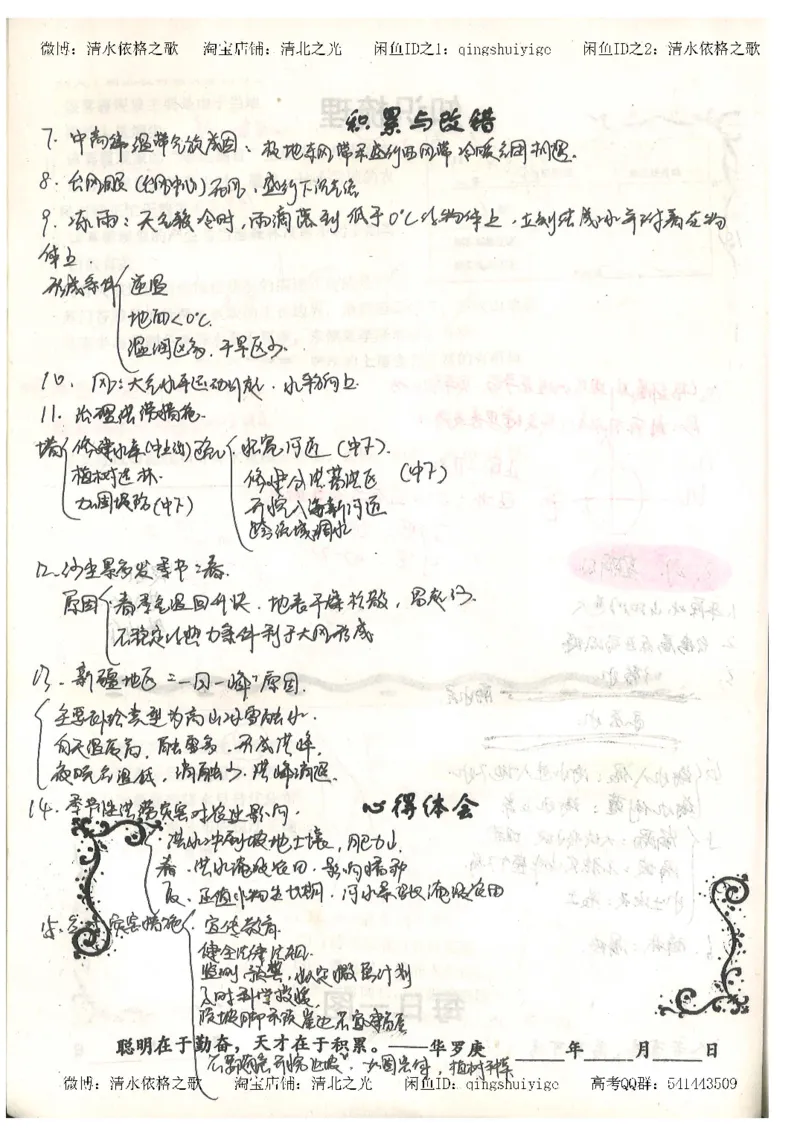 微博：清水依格之歌 淘宝店铺：清北之光 闲鱼ID之1：qingshuiyige 闲鱼ID之2：清水依格之歌
积累与改错
7. 中高纬温带气旋成因：极地东风带和盛行西风带冷暖气团相遇.
8. 台风眼(台风中心)无风，盛行下沉气流
9. 冻雨：天气较冷时，雨滴落到低于0℃的物体上，立刻结成冰并附着在物
体上.
形成条件 逆温
地面<0℃.
湿润区多，干旱区少.
10. 风：大气水平运动形成．水平方向上.
11. 治理洪涝措施.
修建水库(中上游) 水宽河道(中下).
植树造林. 修建分洪蓄洪区 (中下)
加固堤防(中下) 开挖入海新河道
跨流域调水
12. 沙尘暴多发季节：春.
原因 春季气温回升快．地表干燥松散，易起沙.
不稳定的热力条件利于大风形成
13. 新疆地区“一日一峰”原因.
主要补给类型为高山冰雪融水.
白天温度高，融雪多．形成洪峰.
夜晚气温低，消融少．洪峰消退.
14. 季节性洪涝灾害对农业影响.
洪水冲刷坡地土壤，肥力↓.
心得体会
春．洪水淹没农田．影响播种
夏．正值作物生长期．河水暴涨淹没农田
15. 灾害措施 宣传教育.
健全法律法规.
监测预警，制定救灾计划
及时科学救援.
聪明在于勤奋，天才在于积累。——华罗庚 ____年____月____日
微博：清水依格之歌 淘宝店铺：清北之光 闲鱼ID：qingshuiyige 高考QQ群：541443509